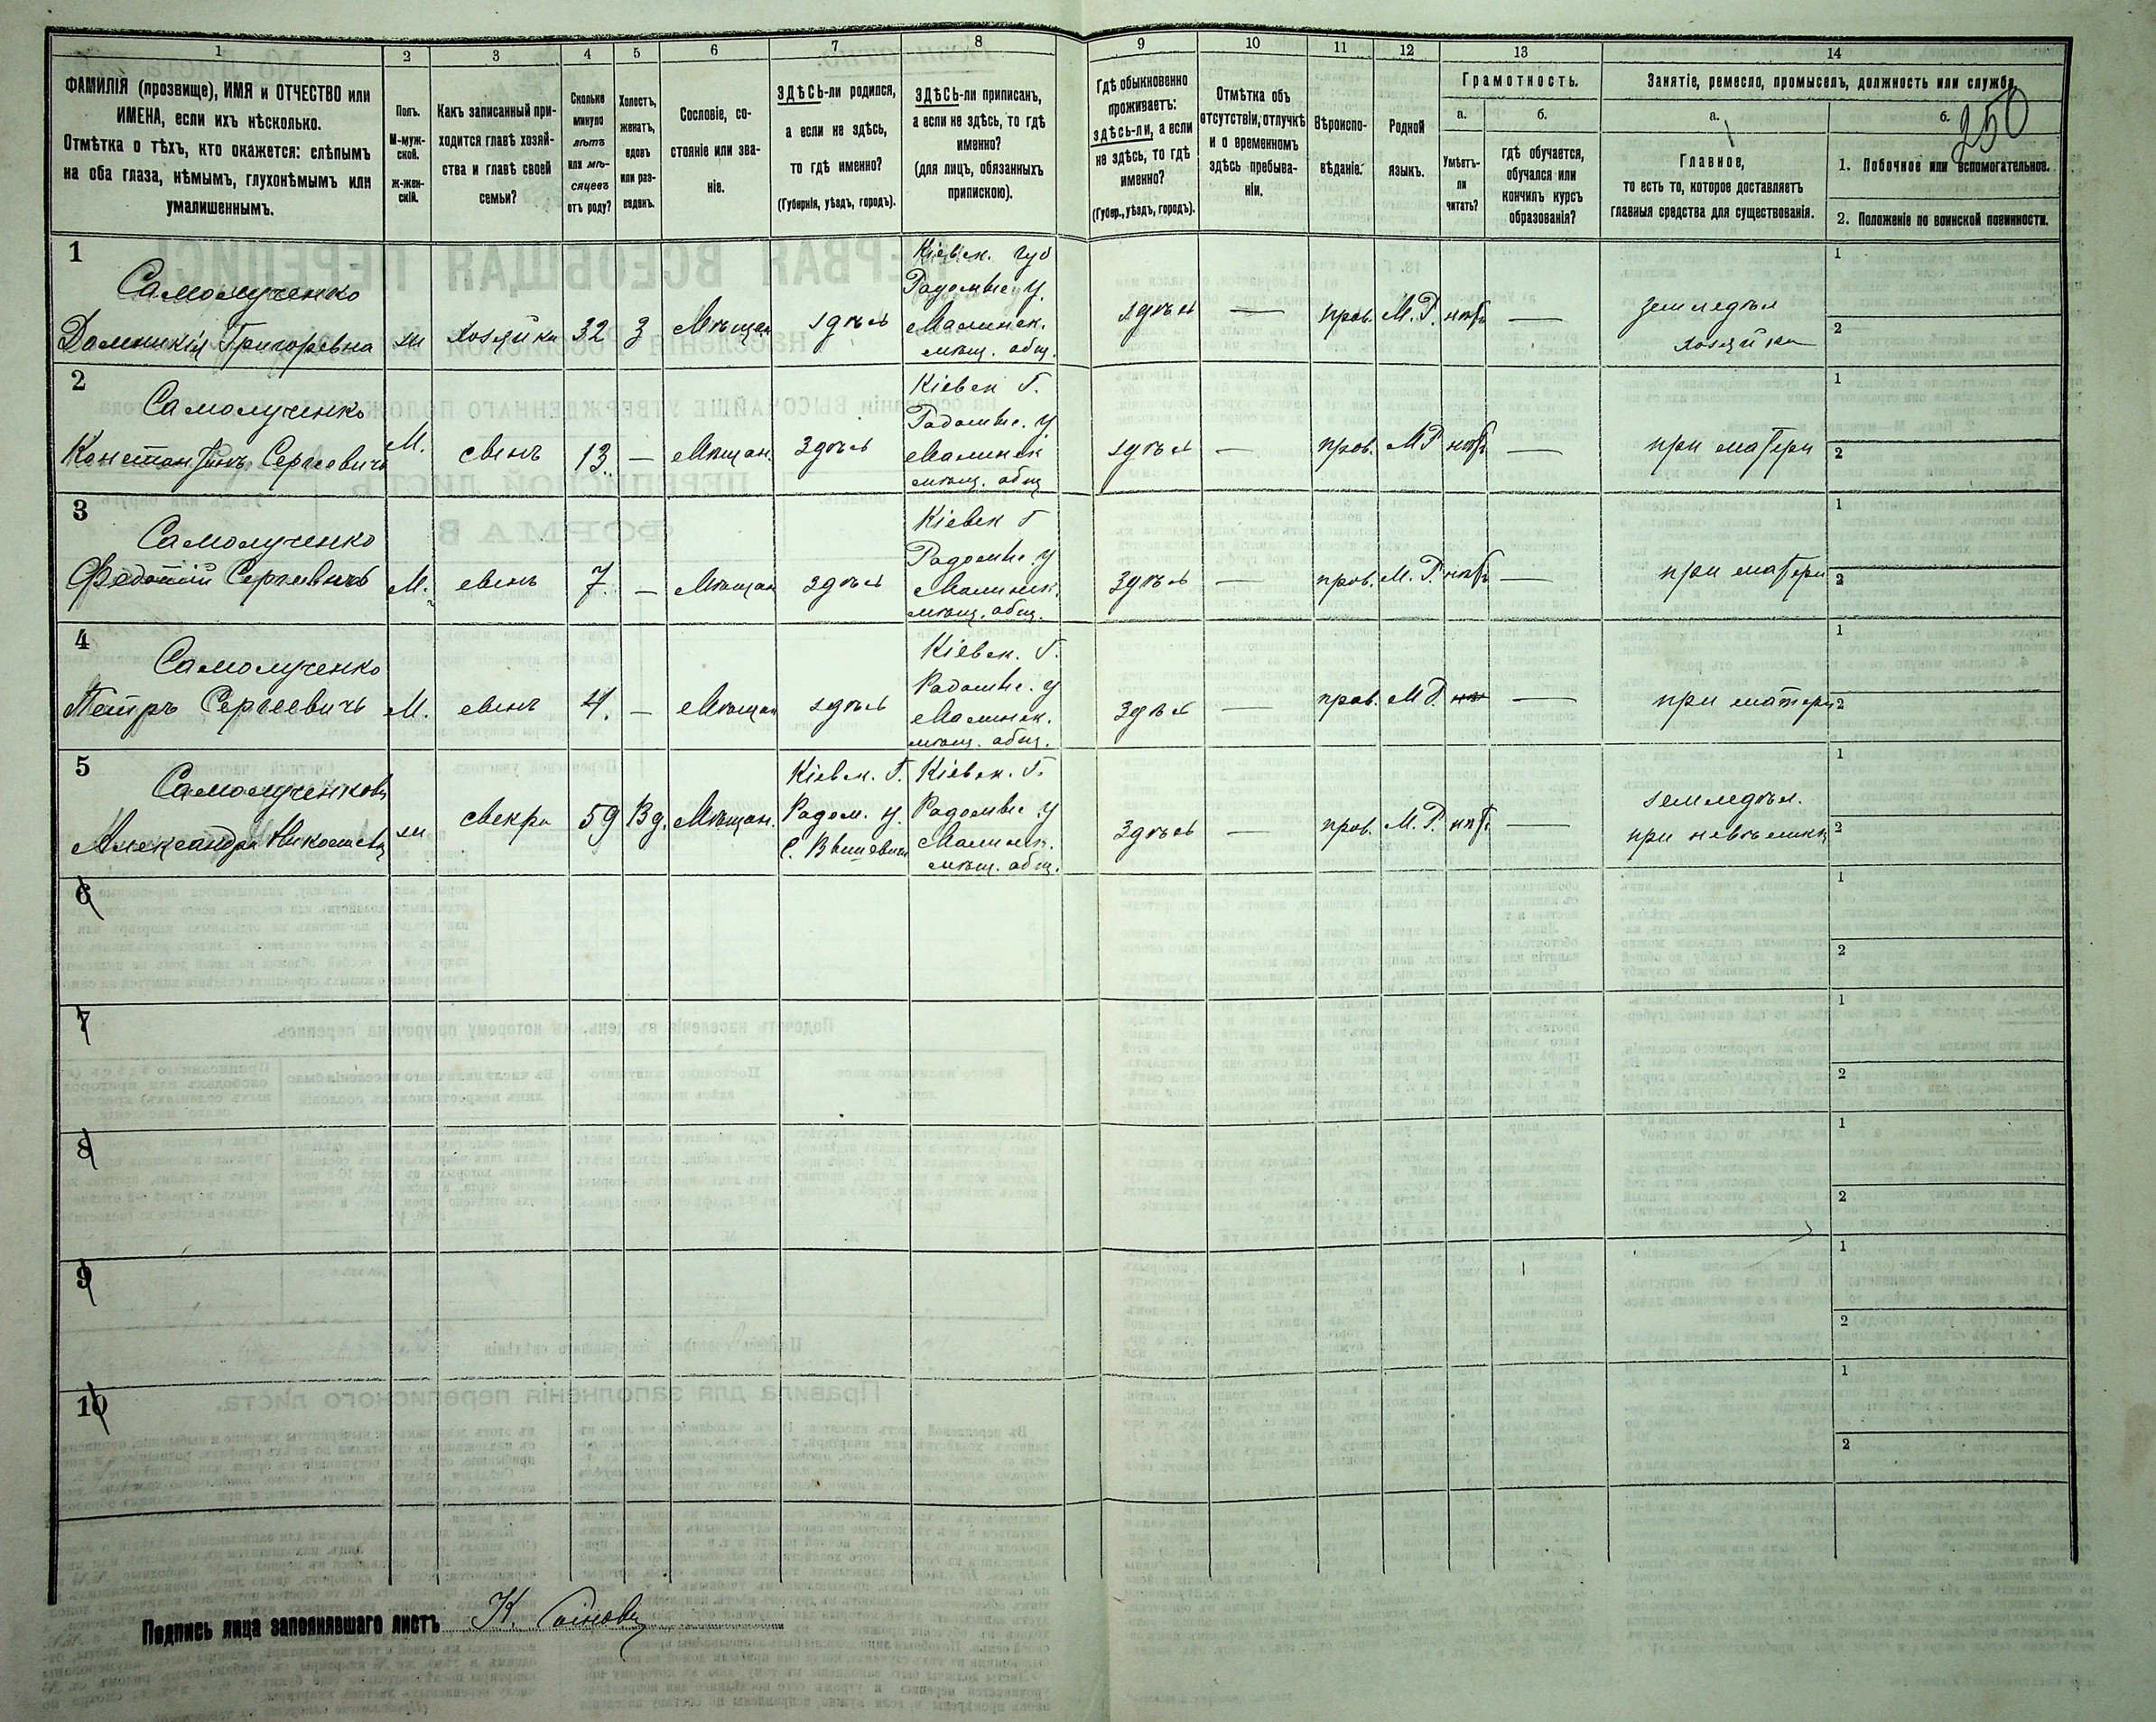 1 2 3 4 5 6 7 8 9 10 11 12 13 14
ФАМИЛІЯ (прозвище), ИМЯ и ОТЧЕСТВО или
ИМЕНА, если ихъ нѣсколько.
Отмѣтка о тѣхъ, кто окажется: слѣпымъ
на оба глаза, нѣмымъ, глухонѣмымъ или
умалишеннымъ.
Полъ.
М-муж-
ской.
ж-жен-
скій.
Какъ записанный при-
ходится главѣ хозяй-
ства и главѣ своей
семьи?
Сколько
минуло
лѣтъ
или мѣ-
сяцевъ
отъ роду?
Холостъ,
женатъ,
вдовъ
или раз-
веденъ.
Сословіе, со-
стояніе или зва-
ніе.
ЗДѢСЬ-ли родился,
а если не здѣсь,
то гдѣ именно?
(Губернія, уѣздъ, городъ).
ЗДѢСЬ-ли приписанъ,
а если не здѣсь, то гдѣ
именно?
(для лицъ, обязанныхъ
припискою).
Гдѣ обыкновенно
проживаетъ:
здѣсь-ли, а если
не здѣсь, то гдѣ
именно?
(Губер., уѣздъ, городъ).
Отмѣтка объ
отсутствіи, отлучкѣ
и о временномъ
здѣсь пребыва-
ніи.
Вѣроиспо-
вѣданіе.
Родной
языкъ.
Грамотность.
а.
Умѣетъ-
ли
читать?
б.
гдѣ обучается,
обучался или
кончилъ курсъ
образованія?
Занятіе, ремесло, промыселъ, должность или служба.
250
а.
Главное,
то есть то, которое доставляетъ
главныя средства для существованія.
б.
1. Побочное или вспомогательное.
2. Положеніе по воинской повинности.
1
Самолученко
Домникія Григорьевна
ж
хозяйка
32
З
Мѣщан
здѣсь
Кіевск. губ
Радомыс. У.
Малинск.
мѣщ. общ.
здѣсь
—
прав.
М. Р.
нѣтъ
—
земледѣл
хозяйка
1
2
2
Самолученко
Константинъ Сергеевичъ
М.
сынъ
13.
—
Мѣщан
здѣсь
Кіевск Г.
Радомыс. У
Малинск
мѣщ. общ
здѣсь
—
прав.
М Р.
нѣтъ
—
при матери
1
2
3
Самолученко
Сергеевичъ
М.
сынъ
7.
—
Мѣщан
здѣсь
Кіевск Г
Радомыс. У
Малинск.
мѣщ. общ.
здѣсь
—
прав.
М. Р.
нѣтъ
—
при матери
1
2
4
Самолученко
Петръ Сергеевичъ
М.
сынъ
4.
—
Мѣщан
здѣсь
Кіевск. Г.
Радомыс. У
Малинск.
мѣщ. общ.
здѣсь
—
прав.
М Р.
—
при матери
1
2
5
Самолученкова
Александра
ж
свекра
59
Вд.
Мѣщан.
Кіевск. Г.
Радом. у.
С.
Кіевск. Г.
Радомыс У
Малинск.
мѣщ. общ.
здѣсь
—
прав.
М. Р.
нѣтъ
—
земледѣл.
при
1
2
6
1
2
7
1
2
8
1
2
9
1
2
10
1
2
Подпись лица заполнявшаго листъ К.